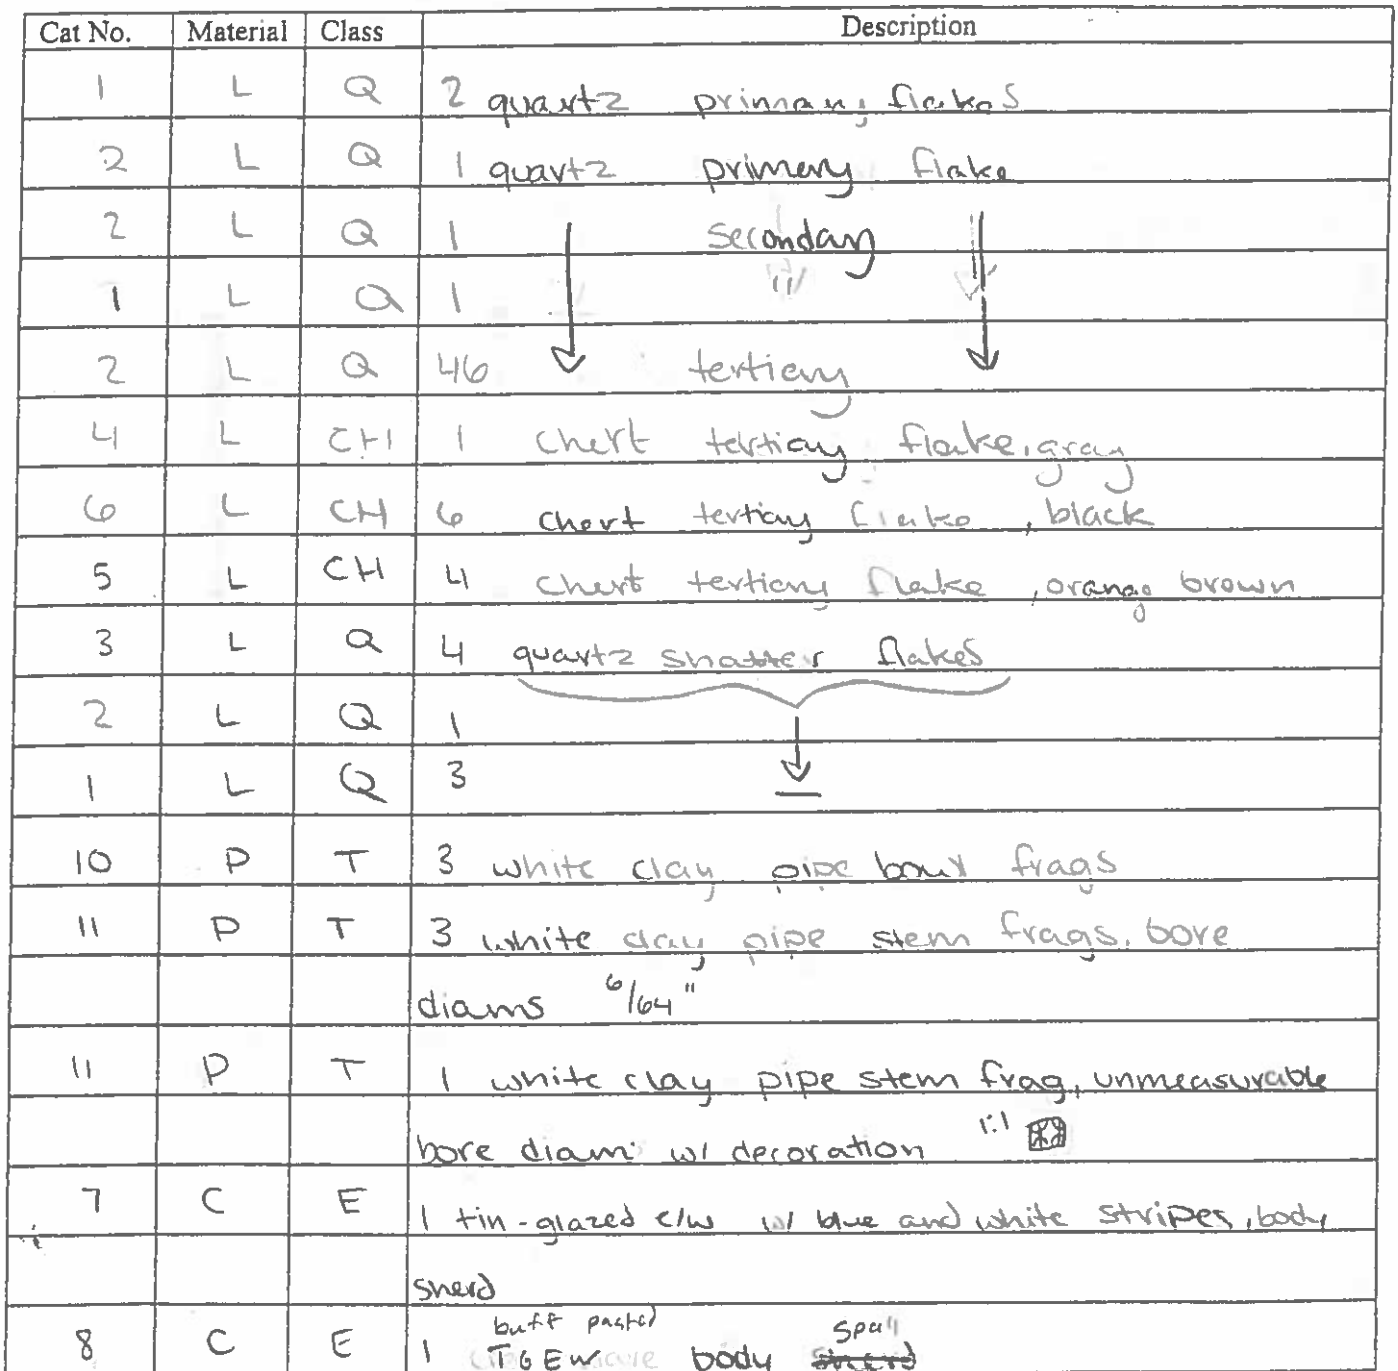 Cat No. Material Class Description
1 L Q 2 quartz primary flakes
2 L Q 1 quartz primary flake
2 L Q 1 secondary
1 L Q 1 "
2 L Q 46 tertiary
4 L CH 1 chert tertiary flake, gray
6 L CH 6 chert tertiary flake, black
5 L CH 4 chert tertiary flake, orange brown
3 L Q 4 quartz shatter flakes
2 L Q 1
1 L Q 3
10 P T 3 white clay pipe bowl frags
11 P T 3 white clay pipe stem frags, bore
diams 6/64"
11 P T 1 white clay pipe stem frag, unmeasurable
bore diam w/ decoration 1:1
7 C E 1 tin-glazed e/w w/ blue and white stripes, body
sherd
buff pasted spall
8 C E 1 TGEW body sherd